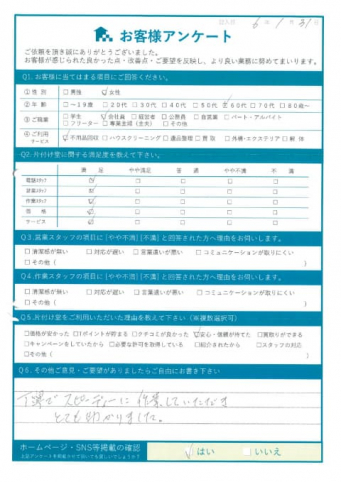 記入日 6 / 1 / 31
お客様アンケート
ご依頼を頂き誠にありがとうございました。
お客様が感じられた良かった点・改善点・ご要望を反映し、より良い業務に努めてまいります。
Q1. お客様に当てはまる項目にご回答ください。
①性 別 □男性 ☑女性
②年 齢 □~19歳 □20代 □30代 □40代 □50代 ☑60代 □70代 □80歳~
③ご職業 □学生 ☑会社員 □経営者 □公務員 □自営業 □パート・アルバイト
□フリーター □専業主婦(主夫) □その他
④ご利用サービス ☑不用品回収 □ハウスクリーニング □遺品整理 □買取 □外構・エクステリア □解体
Q2. 片付け堂に関する満足度を教えて下さい。
満 足 やや満足 普 通 やや不満 不 満
電話スタッフ ☑ □ □ □ □
営業スタッフ ☑ □ □ □ □
作業スタッフ ☑ □ □ □ □
価 格 ☑ □ □ □ □
サービス ☑ □ □ □ □
Q3.営業スタッフの項目に[やや不満][不満]と回答された方へ理由をお伺いします。
□清潔感が無い □対応が遅い □言葉遣いが悪い □コミュニケーションが取りにくい
□その他( )
Q4.作業スタッフの項目に[やや不満][不満]と回答された方へ理由をお伺いします。
□清潔感が無い □対応が遅い □言葉遣いが悪い □コミュニケーションが取りにくい
□その他( )
Q5.片付け堂をご利用いただいた理由を教えて下さい(※複数選択可)
□価格が安かった □Tポイントが貯まる □クチコミが良かった ☑安心・信頼が持てた □買取りができる
□キャンペーンをしていたから □必要な許可を取得している □紹介されたから □スタッフの対応
□その他( )
Q6.その他ご意見・ご要望がありましたらご自由にお書き下さい
丁寧でスピーディーに作業していただき
とても助かりました。
ホームページ・SNS等掲載の確認
上記アンケートを掲載させて頂いても宜しいでしょうか?
☑はい □いいえ